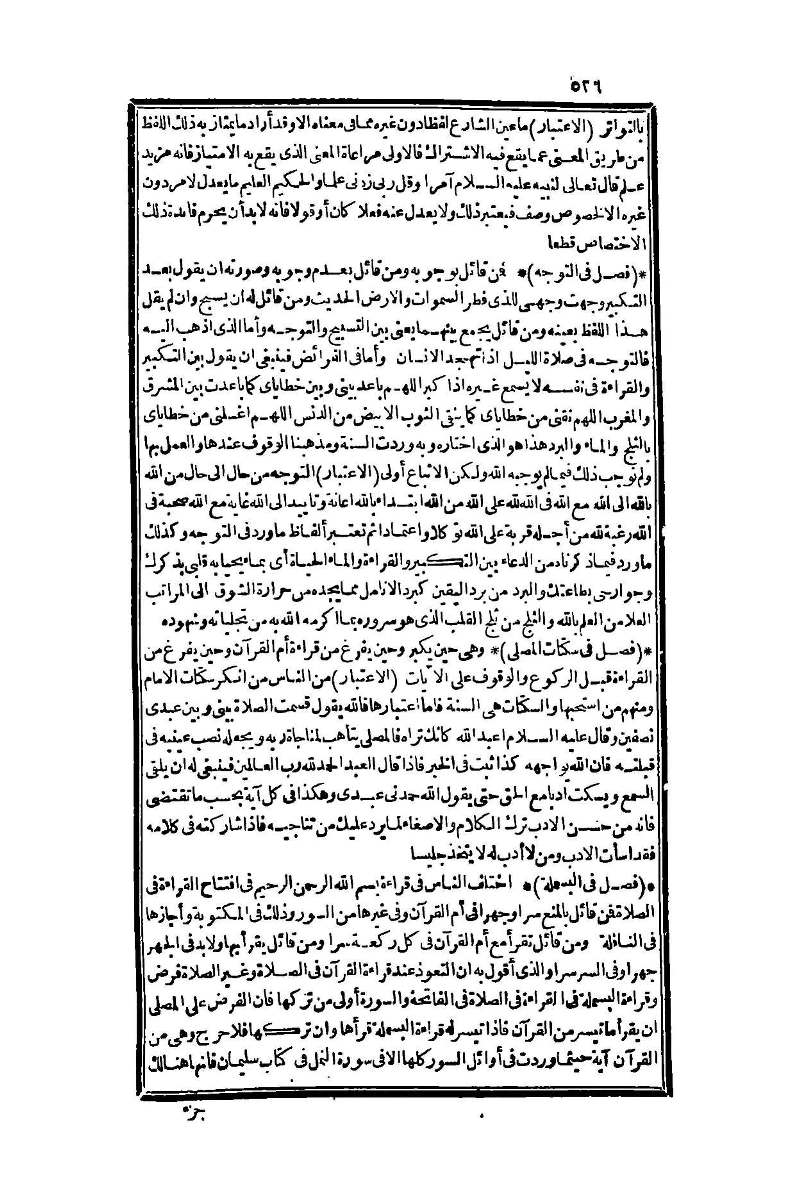 ٥٢٦
بالتواتر (الاعتبار) ما عين الشارع لفظا دون غيره مما في معناه الا وقد أراد ما يمتاز به ذلك اللفظ
من طريق المعنى عما يقع فيه الاشتراك فالاولى مراعاة المعنى الذى يقع به الامتياز فانه مزيد
علم قال تعالى لنبيه عليه السلام آمرا وقل ربى زدنى علما والحكيم العليم ما يعدل لامر دون
غيره الا لخصوص وصف فيعتبر ذلك ولا يعدل عنه فعلا كان أو قولا فانه لا بد أن يحرم فائدة ذلك
الاختصاص قطعا
*(فصل فى التوجه)* فمن قائل بوجوبه ومن قائل بعدم وجوبه وصورته ان يقول بعد
التكبير وجهت وجهى للذى فطر السموات والارض الحديث ومن قائل له ان يسبح وان لم يقل
هذا اللفظ بعينه ومن قائل يجمع بينهما يعنى بين التسبيح والتوجه وأما الذى اذهب اليه
فالتوجه فى صلاة الليل اذا تهجد الانسان وأما فى الفرائض فينبغى ان يقول بين التكبير
والقراءة فى نفسه لا يسمع غيره اذا كبر اللهم باعد بينى وبين خطاياى كما باعدت بين المشرق
والمغرب اللهم نقنى من خطاياى كما ينقى الثوب الابيض من الدنس اللهم اغسلنى من خطاياى
بالثلج والماء والبرد هذا هو الذى اختاره وبه وردت السنة ومذهبنا الوقوف عندها والعمل بها
ولم نوجب ذلك فيما لم يوجبه الله ولكن الاتباع أولى (الاعتبار) التوجه من حال الى حال من الله
بالله الى الله مع الله فى الله لله على الله من الله ابتداء بالله اعانة وتاييد الى الله غاية مع الله صحبة فى
الله رغبة لله من أجله قربة على الله توكلا واعتمادا ثم تعتبر ألفاظ ما ورد فى التوجه وكذلك
ما ورد فيما ذكرناه من الدعاء بين التكبير والقراءة والماء الحياة أى بما يحيا به قلبى بذكرك
وجوارحى بطاعتك والبرد من برد اليقين كبرد الانامل مما يجده من حرارة الشوق الى المراتب
العلا من العلم بالله والثلج من ثلج القلب الذى هو سروره بما اكرمه الله به من تجلياته وشهوده
*(فصل فى سكتات المصلى)* وهى حين يكبر وحين يفرغ من قراءة أم القرآن وحين يفرغ من
القراءة قبل الركوع والوقوف على الآيات (الاعتبار) من الناس من انكر سكتات الامام
ومنهم من استحبها والسكتات هى السنة فاما اعتبارها فالله يقول قسمت الصلاة بينى وبين عبدى
نصفين وقال عليه السلام اعبد الله كانك تراه فالمصلى يتأهب لمناجاة ربه ويجعله نصب عينيه فى
قبلته فان الله يواجهه كذا ثبت فى الخبر فاذا قال العبد الحمد لله رب العالمين فينبغى له ان يلقى
السمع ويسكت ادبا مع الحق حتى يقول الله حمدنى عبدى وهكذا فى كل آية بحسب ما تقتضى
فانه من حسن الادب ترك الكلام والاصغاء لما يرد عليك من تناجيه فاذا شاركته فى كلامه
فقد اسأت الادب ومن لا أدب له لا يتخذ جليسا
*(فصل فى البسملة)* اختلف الناس فى قراءة بسم الله الرحمن الرحيم فى افتتاح القراءة فى
الصلاة فمن قائل بالمنع سرا وجهرا فى أم القرآن وفى غيرها من السور وذلك فى المكتوبة وأجازها
فى النافلة ومن قائل تقرأ مع أم القرآن فى كل ركعة سرا ومن قائل يقرأ بها ولا بد فى الجهر
جهرا وفى السر سرا والذى أقول به ان التعوذ عند قراءة القرآن فى الصلاة وغير الصلاة فرض
وقراءة البسملة فى القراءة فى الصلاة فى الفاتحة والسورة أولى من تركها فان الفرض على المصلى
ان يقرأ ما تيسر من القرآن فاذا تيسر له قراءة البسملة قرأها وان تركها فلا حرج وهى من
القرآن آية حيثما وردت فى أوائل السور كلها الا فى سورة النمل فى كتاب سليمان فانها هنالك
جزء